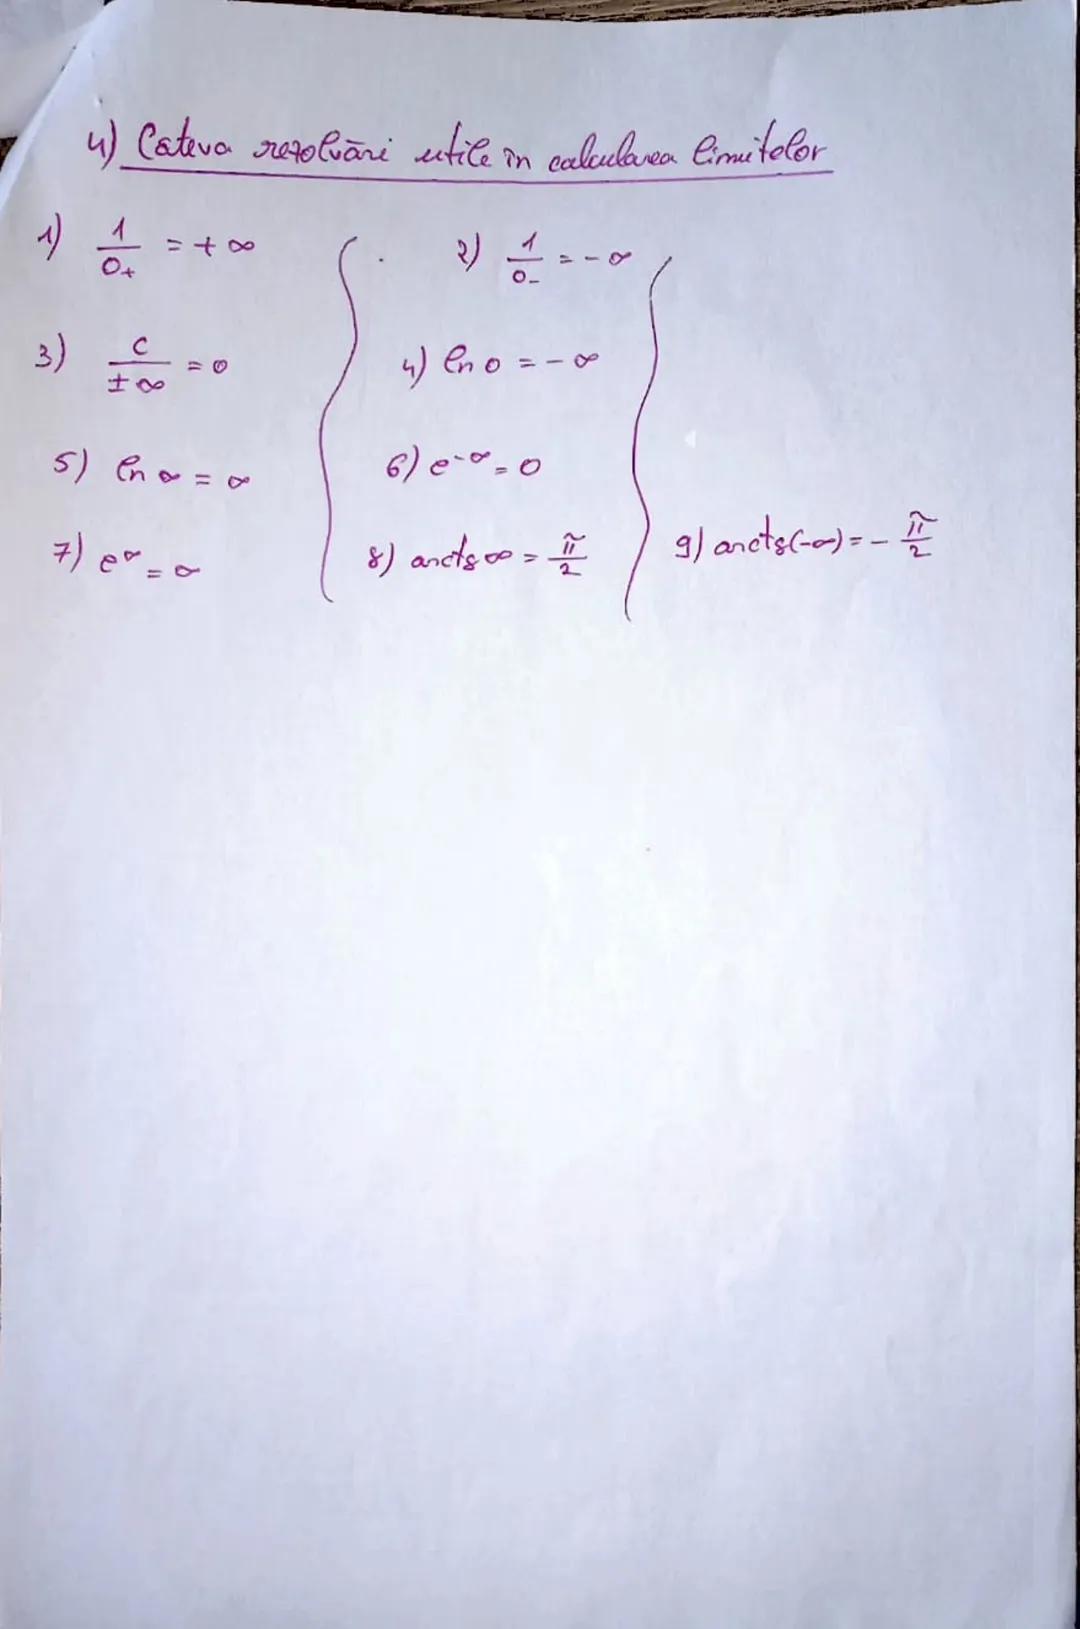 4) Cateva rezolvări utile în calcularea limitelor
1) 1/0+ = +∞ 2) 1/0- = -∞
3) c/±∞ = 0 4) ln 0 = -∞
5) ln ∞ = ∞ 6) e^-∞ = 0
7) e^∞ = ∞ 8) arctg ∞ = π/2 9) arctg(-∞) = - π/2